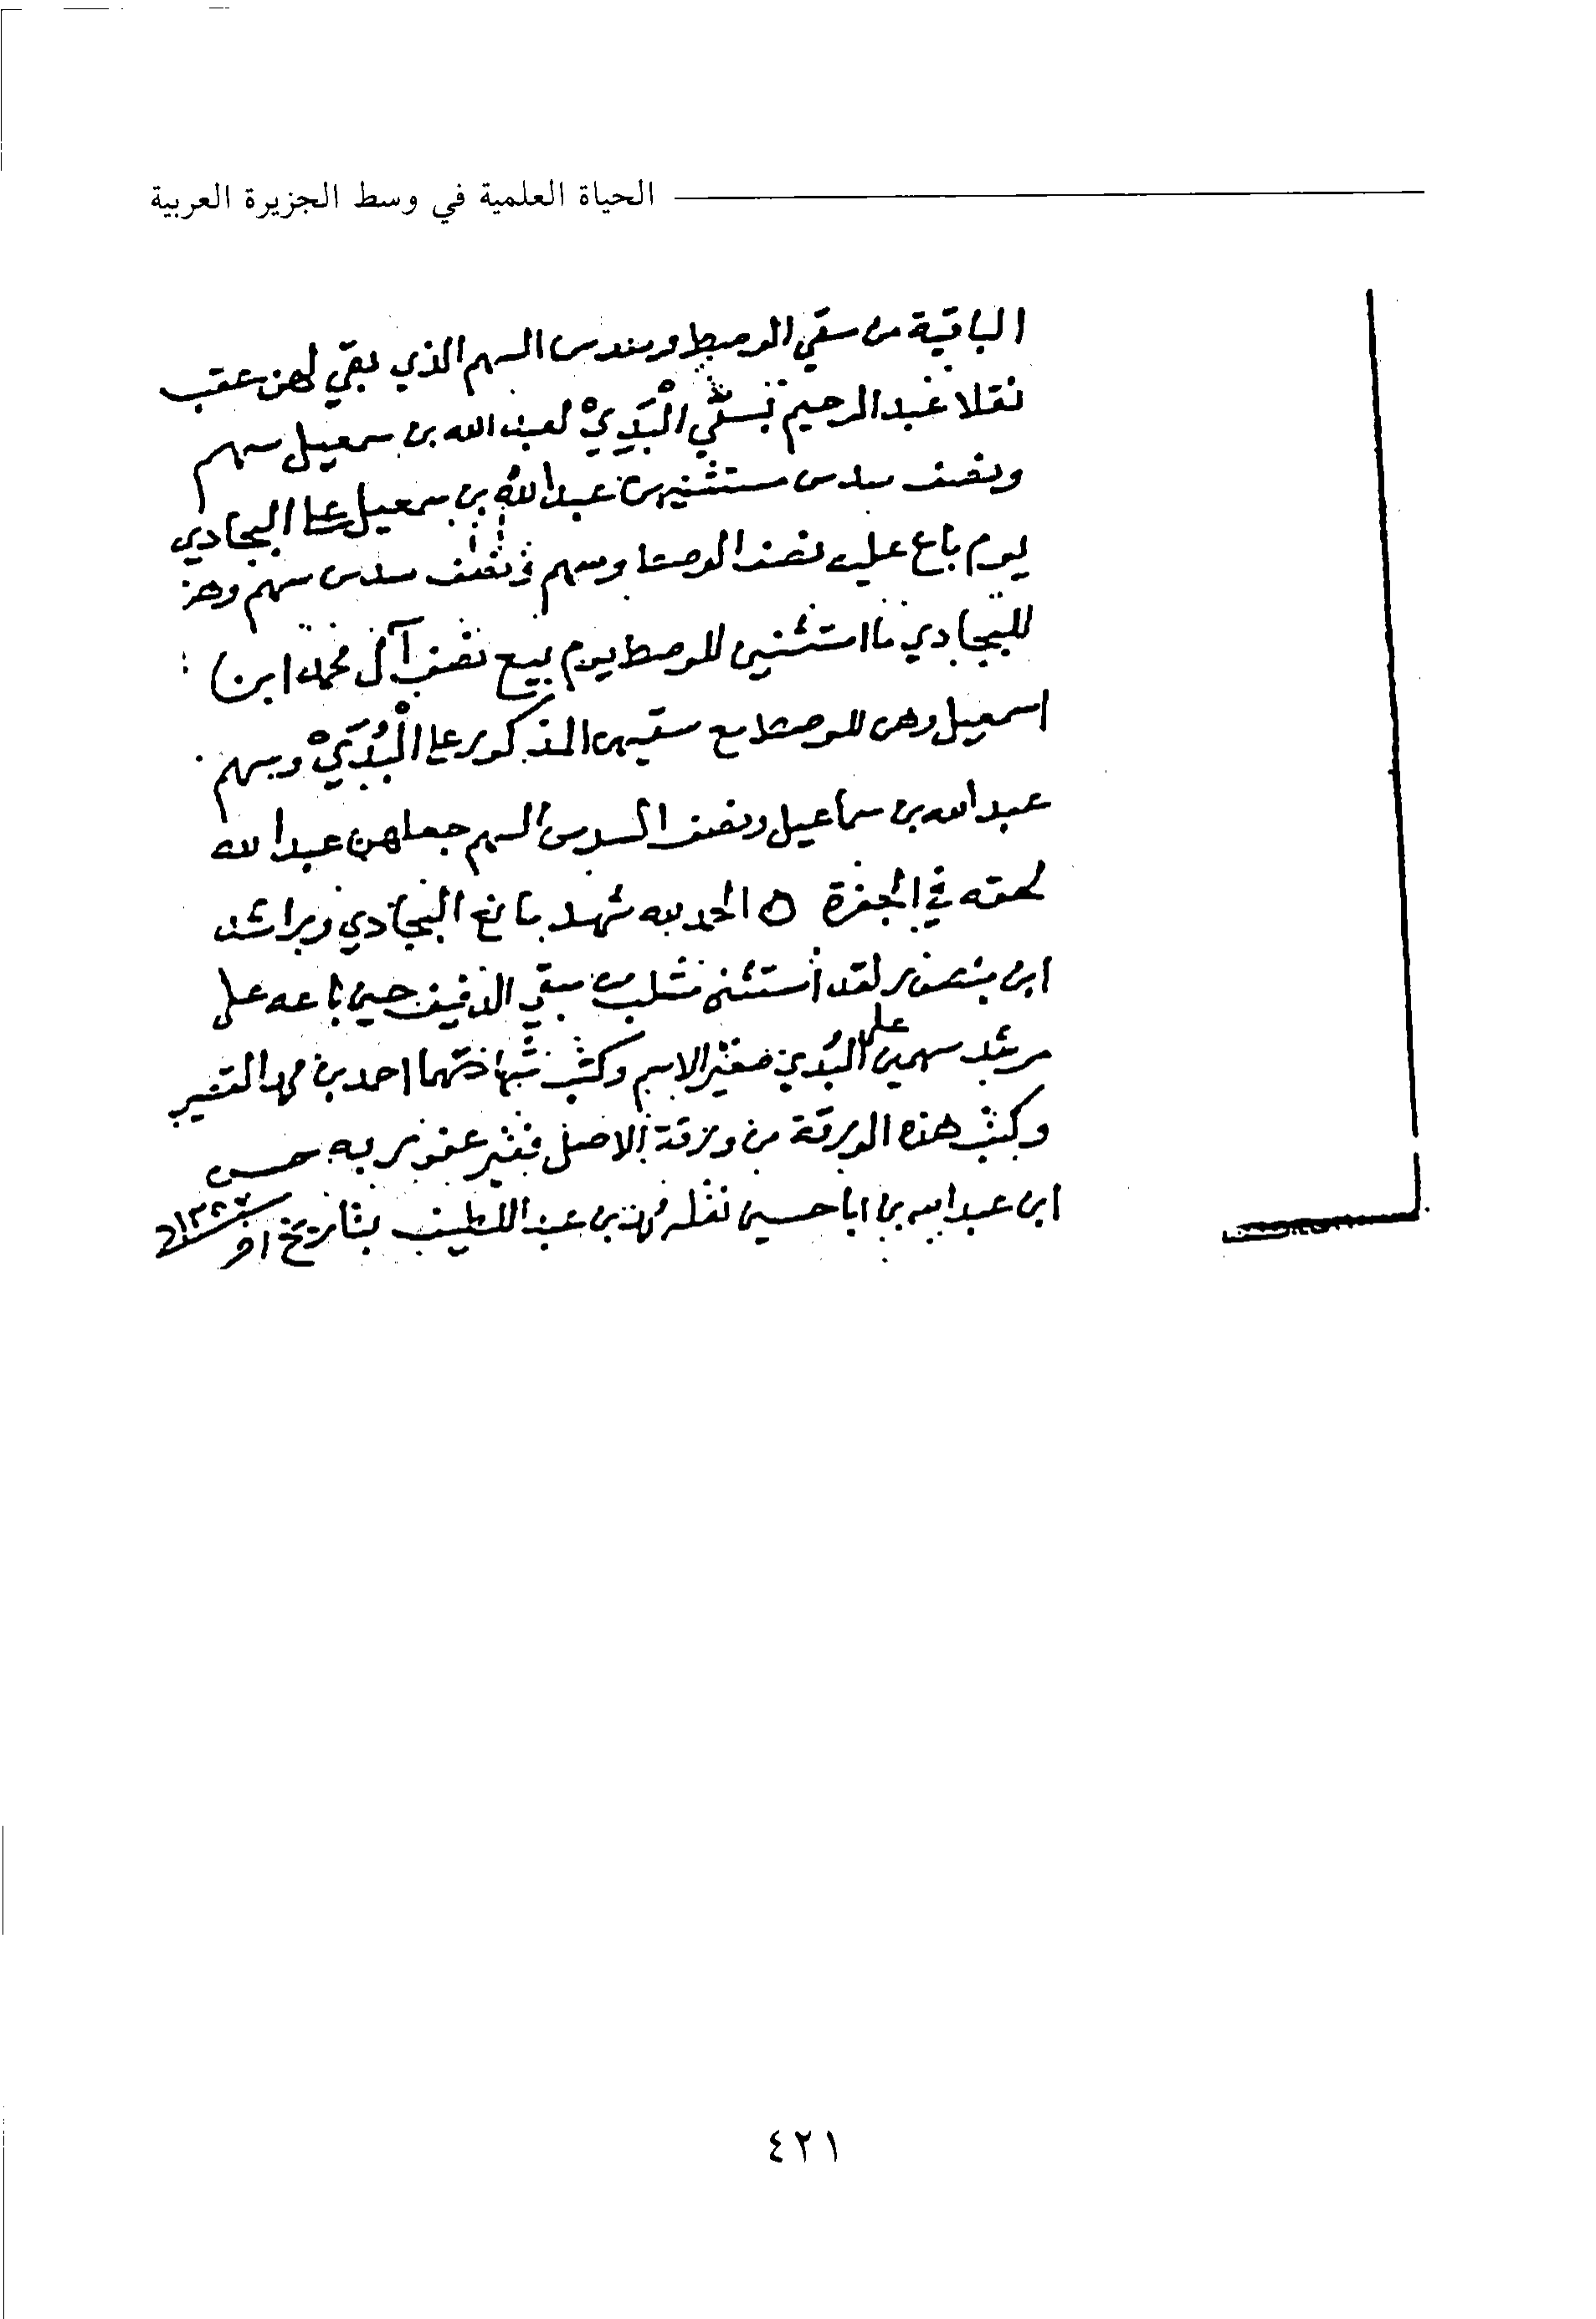 الحياة العلمية في وسط الجزيرة العربية
الباقية من سقي الوصيط وسدس السهم الذي بقي لهن عقب
نقلا عبدالرحيم بسقي الْبَدِيْ لعبدالله بن سمعيل سهم
ونصف سدس مستثنيهن عبدالله بن سمعيل على البجادي
يوم باع عليه نصف الوصطا وسهم ونصف سدس سهم وهن
للبجادي ما استثنين للوصطا يوم بيع نصف آل محمد ابن
اسمعيل وهن للوصطا مع سقيهن المذكور على الْبُدَيْ وسهم
عبدالله بن سماعيل ونصف السدس السهم جعلهن عبدالله
لحقه في الجفرة ه الحمد لله شهد مانع البجادي وراشد
ابن منصور لقد استثنى من سقي حين باعه على
مرشد سهمين على البُدي صغير الاسم وكتب شهادتهما احمد بن محمد القصير
وكتب هذه الورقة من ورقة الاصل فقير عفو ربه حسن
ابن عبدالله بن ابا حسين نقله محمد بن عبد اللطيف بتاريخ
٤٢١